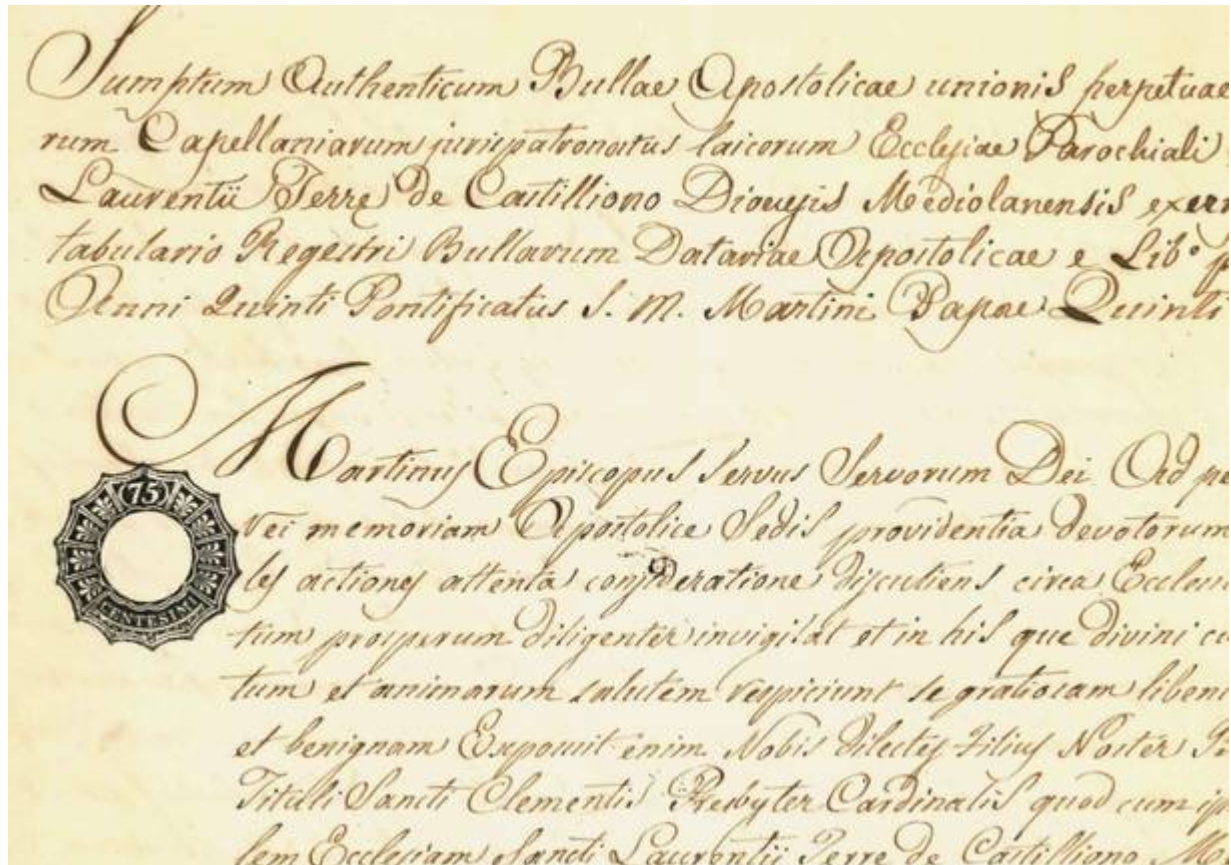 Sumptum Authenticum Bullae Apostolicae unionis perpetuae
rum Capellaniarum jurispatronatus laicorum Ecclesiae Parochiali
Laurentii Terre de Castilliono Diocesis Mediolanensis
tabulario Regestri Bullarum Datariae Apostolicae e Libº
Anni Quinti Pontificatus S. M. Martini Papae Quinti
Martinus Episcopus Servus Servorum Dei Ad
75
vei memoriam Apostolice Sedis providentia devotorum
les actiones attenta consideratione discutiens circa
CENTESIMI
tum prosperum diligenter invigilat et in his que divini
tum et animarum salutem respiciunt se gratiosam
et benignam Exposuit enim Nobis dilectus Filius Noster
Tituli Sancti Clementis Presbyter Cardinalis quod cum
lem Ecclesiam Sancti Laurentii Terre de Castilliono